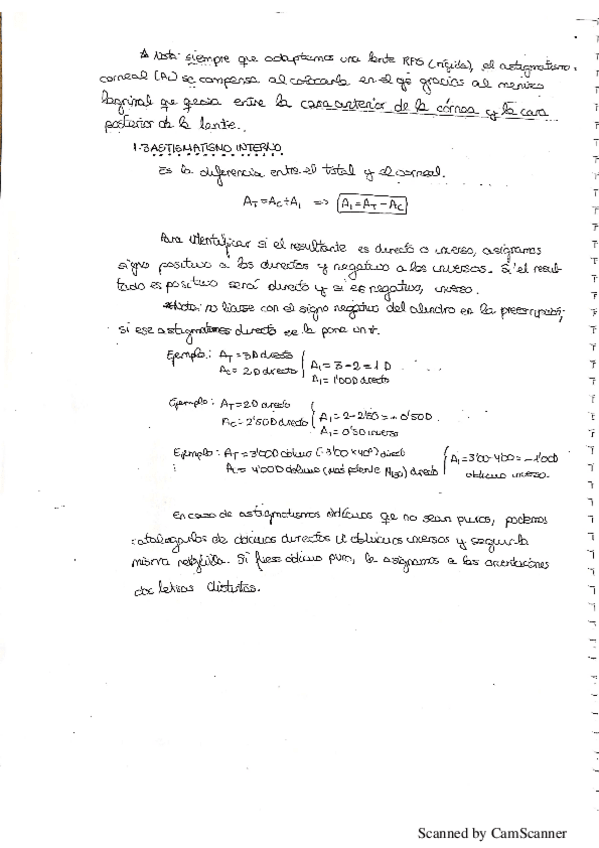 * Nota: siempre que adaptamos una lente RPG (rígida), el astigmatismo
corneal (Ac) se compensa al colocarla en el ojo gracias al menisco
lagrimal que queda entre la cara anterior de la córnea y la cara
posterior de la lente.
1.3 ASTIGMATISMO INTERNO
Es la diferencia entre el total y el corneal.
AT = AC + AI => AI = AT - AC
Para identificar si el resultante es directo o inverso, asignamos
signo positivo a los directos y negativo a los inversos. Si el resul-
tado es positivo será directo y si es negativo, inverso.
*Nota: no liarse con el signo negativo del cilindro en la prescripción,
si ese astigmatismo directo se la pone un +.
Ejemplo: AT = 3D directo
AC = 2D directo
AI = 3 - 2 = 1 D
AI = 1'00D directo
Ejemplo: AT = 2D directo
AC = 2'50D directo
AI = 2 - 2'50 = - 0'50D
AI = 0'50 inverso
Ejemplo: AT = 3'00D oblicuo (-3'00 x 40º) directo
AC = 4'00D oblicuo (más potente N150) directo
AI = 3'00 - 4'00 = - 1'00D
oblicuo inverso.
En caso de astigmatismos oblicuos que no sean puros, podemos
catalogarlos de oblicuos directos u oblicuos inversos y seguir la
misma reglilla. Si fuese oblicuo puro, le asignamos a las orientaciones
de letras distintas.
Scanned by CamScanner